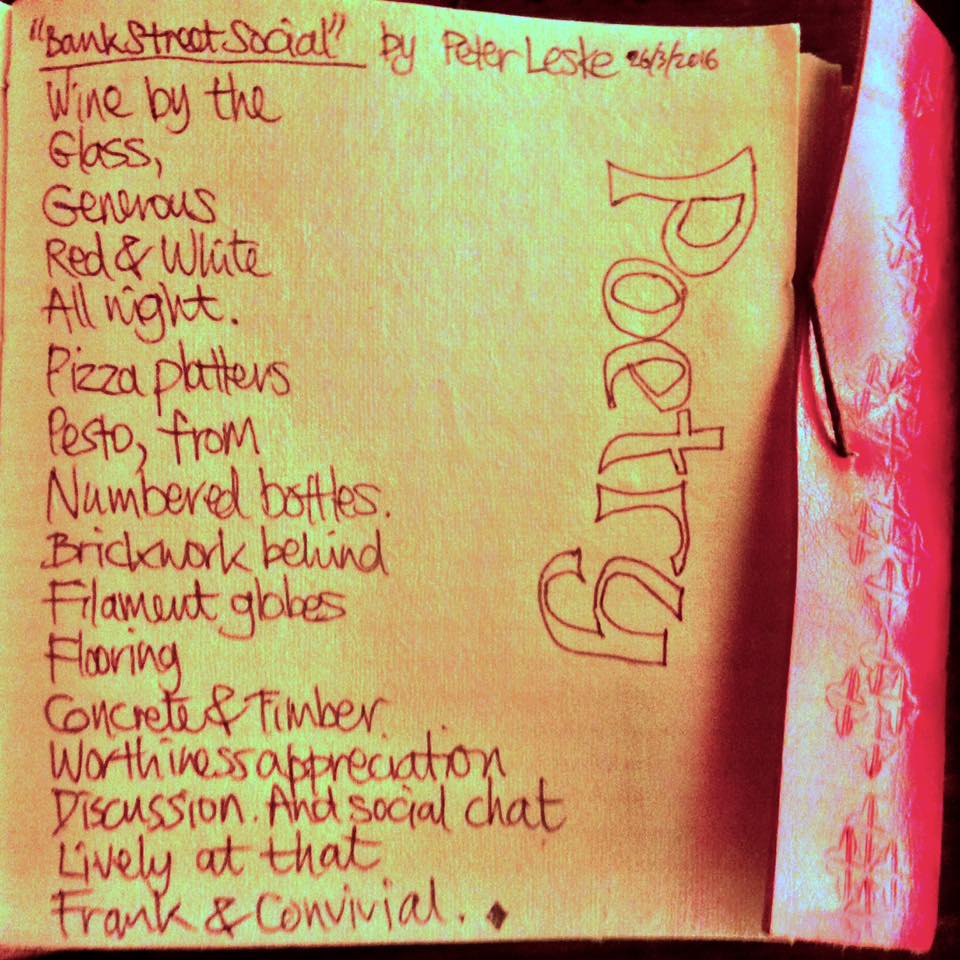 "Bank Street Social" by Peter Leske 26/3/2016
Wine by the
Glass,
Generous
Red & White
All night.
Pizza platters
Pesto, from
Numbered bottles.
Brickwork behind
Filament globes
Flooring
Concrete & Timber.
Worthiness appreciation
Discussion. And social chat
Lively at that
Frank & Convivial.
Poetry